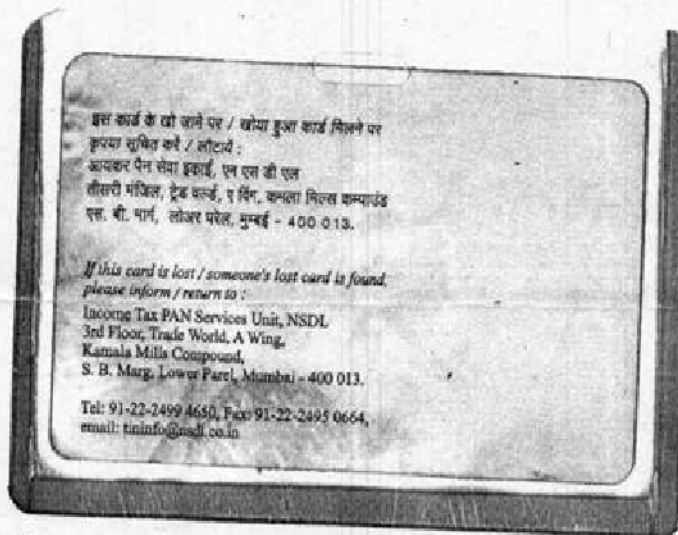 इस कार्ड के खो जाने पर / खोया हुआ कार्ड मिलने पर
कृपया सूचित करें / लौटायें :
आयकर पैन सेवा इकाई, एन एस डी एल
तीसरी मंजिल, ट्रेड वर्ल्ड, ए विंग, कमला मिल्स कम्पाउंड
एस. बी. मार्ग, लोअर परेल, मुम्बई - 400 013.
If this card is lost / someone's lost card is found,
please inform / return to :
Income Tax PAN Services Unit, NSDL
3rd Floor, Trade World, A Wing,
Kamala Mills Compound,
S. B. Marg, Lower Parel, Mumbai - 400 013.
Tel: 91-22-2499 4650, Fax: 91-22-2495 0664,
email: tininfo@nsdl.co.in